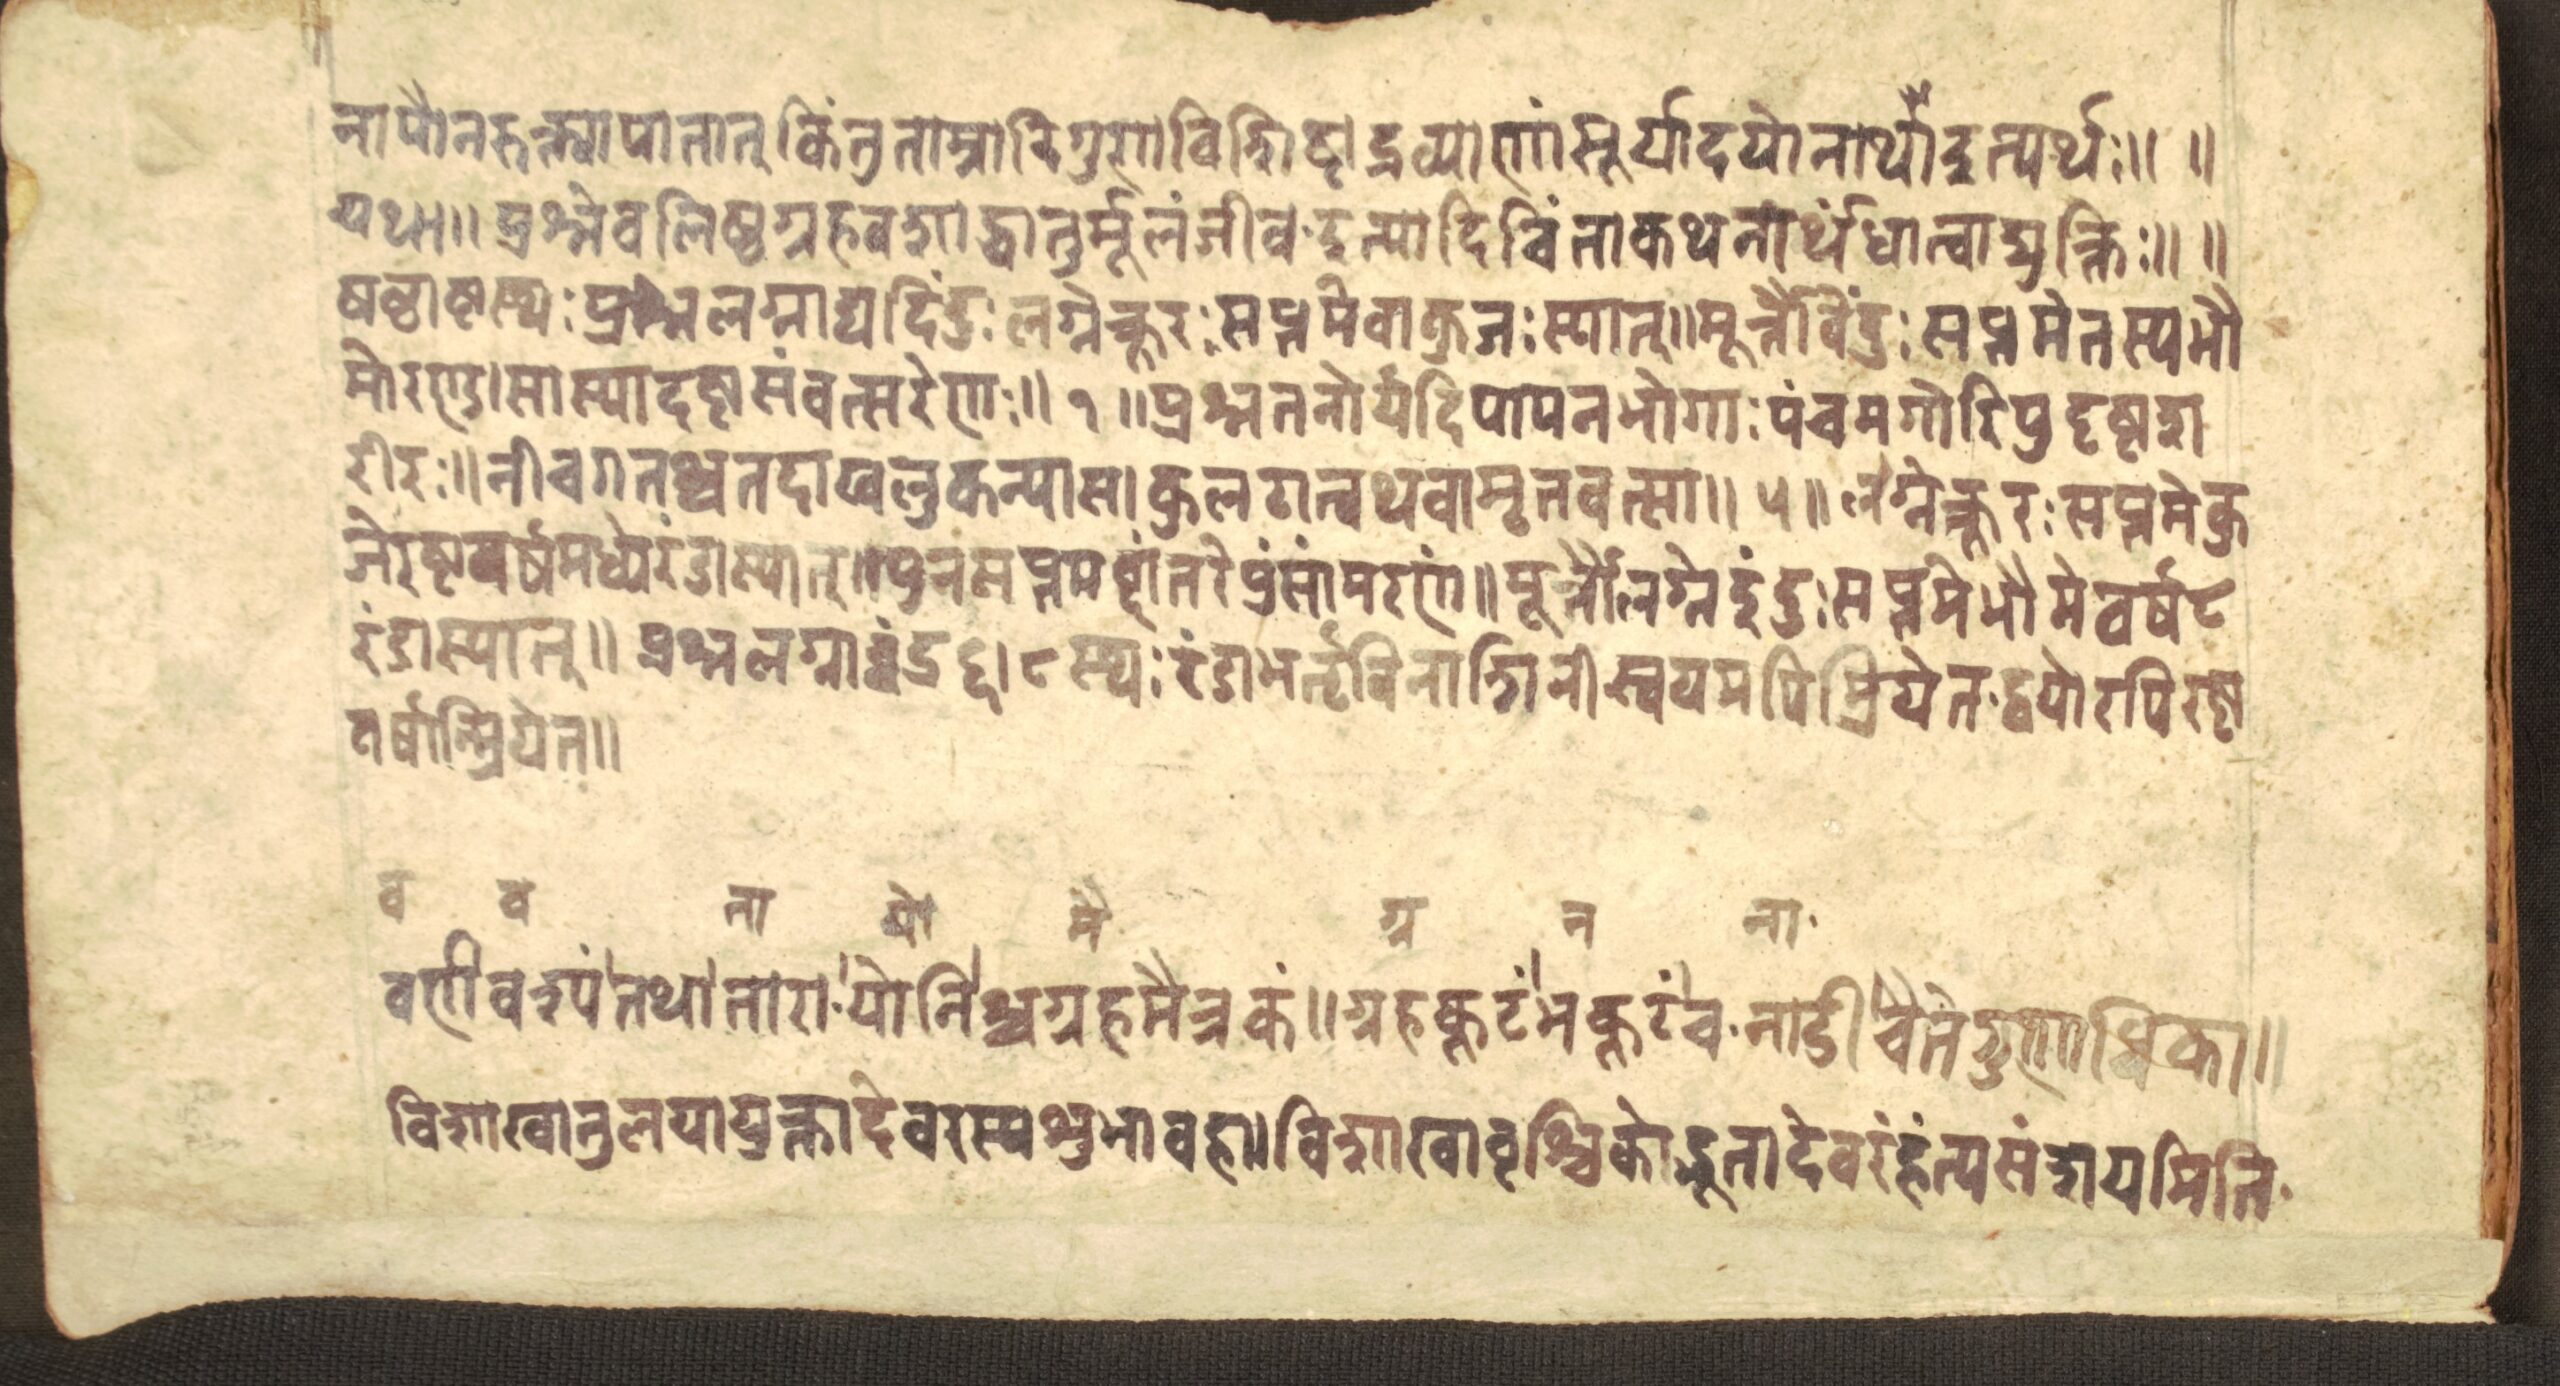 नापौनरुक्त्यापातात् किंतु ताम्रादिगुणविशिष्टद्रव्याणां सूर्यादयो नार्था इत्यर्थः॥ ॥
यथा॥ प्रश्ने वलिष्ठग्रहवशाद्धातुर्मूलं जीव इत्यादि चिंताकथनार्थं धात्वाद्युक्तिः॥ ॥
षष्ठाष्टस्थः प्रश्नलग्नाद्यदिंदुः लग्ने क्रूरः सप्तमे वा कुजः स्यात्॥ मूर्त्तौविंदुः सप्तमे तस्य भौ
मो रण्डा सा स्यादष्टसंवत्सरेण॥ १ ॥ प्रश्नतनोर्यदि पापनभोगः पंचमगो रिपुदृष्टश
रीरः॥ नीचगतश्च तदा खलु कन्या सा कुलटा त्वथवा मृतवत्सा॥ ५ ॥ लग्ने क्रूरः सप्तमे कु
जे रष्टवर्षमध्ये रंडा स्यात्॥ पुनः सप्तमवर्षांतरे पुंसां मरणं॥ मूर्त्तौ लग्ने इंदुः सप्तमे भौमे वर्ष ८
रंडा स्यात्॥ प्रश्नलग्नाच्चंद्र ६।८ स्थः रंडा भर्तृविनाशिनी स्वयमपि म्रियेत द्वयोरपि रष्ट
वर्षान्म्रियेत॥
व व ना यो मै ग्र न ना
वर्णो वश्यं तथा तारा योनिश्च ग्रहमैत्रकं॥ ग्रहकूटं भकूटं च नाडी चैते गुणाधिका॥
विशाखातुलयायुक्ता देवरस्य शुभावहा॥ विशाखावृश्चिकोद्भूता देवरं हंत्यसंशयमिति